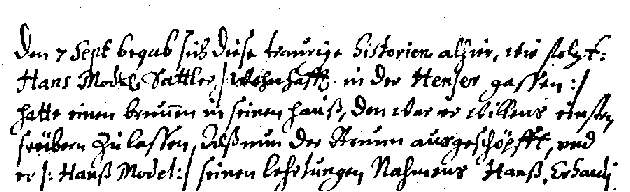 Den 7 Sept begab sich diese traurige historien alhier, wie folgt:
Hans Model Sattler /: Wohnhafft in der Henser gassen :/
hatte einen brunen in seinen hauß, den war er willens
säubern zu lassen, Alß nun der Brunn ausgeschöpfft, und
er /: Hanß Model :/ seinen Lehrjungen Nahmens Hanß Erhard